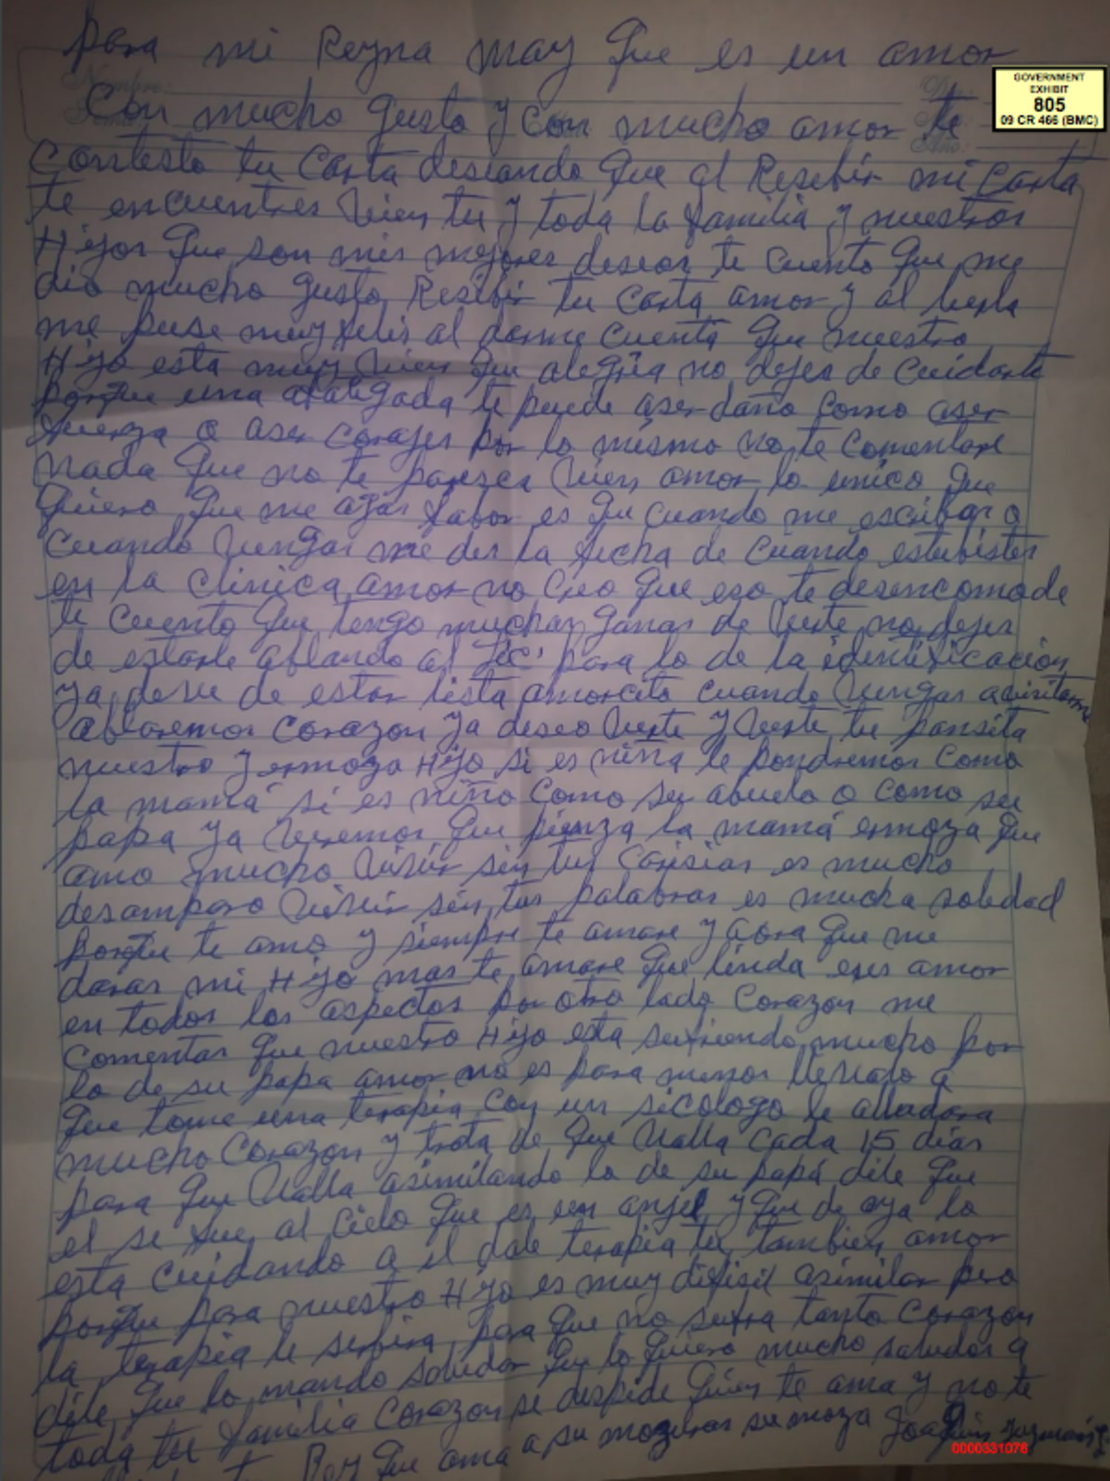 para mi Reyna may que es un amor
GOVERNMENT
EXHIBIT
805
09 CR 466 (BMC)
Con mucho gusto y con mucho amor te
contesto tu Carta deseando que al Resebir mi Carta
te encuentres vien tu y toda la familia y nuestros
Hijos que son mis mejores deseos te cuento que me
dio mucho gusto Resebir tu carta amor y al
me puse muy felis al darme cuenta que nuestro
Hijo esta muy vien que alegria no dejes de cuidarte
porque una te puede aser daño como aser
fuerza o aser corajes por lo mismo no te comentare
nada que no te paresca vien amor lo unico que
quiero que me agas fabor es que cuando me escribas o
cuando vengas me des la fecha de cuando estubistes
en la clinica amor no creo que eso te desencomode
te cuento que tengo muchas ganas de verte no dejes
de estarle ablando al Lic. para lo de la identificacion
ya deve de estar lista amorcito cuando vengas
ablaremos corazon ya deseo verte y verte tu pansita
nuestro y ermoza Hijo si es niña le pondremos como
la mamá si es niño como su abuelo o como su
papa ya veremos que pienza la mamá ermoza que
amo mucho vivir sin tus carisias es mucho
desamparo vivir sin tus palabras es mucha soledad
porque te amo y siempre te amare y aora que me
daras mi Hijo mas te amare que linda eres amor
en todos los aspectos por otro lado Corazon me
comentas que nuestro Hijo esta sufriendo mucho por
lo de su papa amor no es para menos llevalo a
que tome una terapia con un sicologo le alludara
mucho Corazon y trata de que valla cada 15 dias
para que valla asimilando lo de su papá dile que
el se fue al cielo que es un anjel y que de aya lo
esta cuidando a el dale terapia tu tambien amor
porque para nuestro Hijo es muy difisil asimilar pero
la terapia le serbira para que no sufra tanto Corazon
dile que lo mando saludar que lo quiero mucho saludos a
toda tu familia Corazon se despide quien te ama y no te
Rey que ama a su Joaquin
0000331076